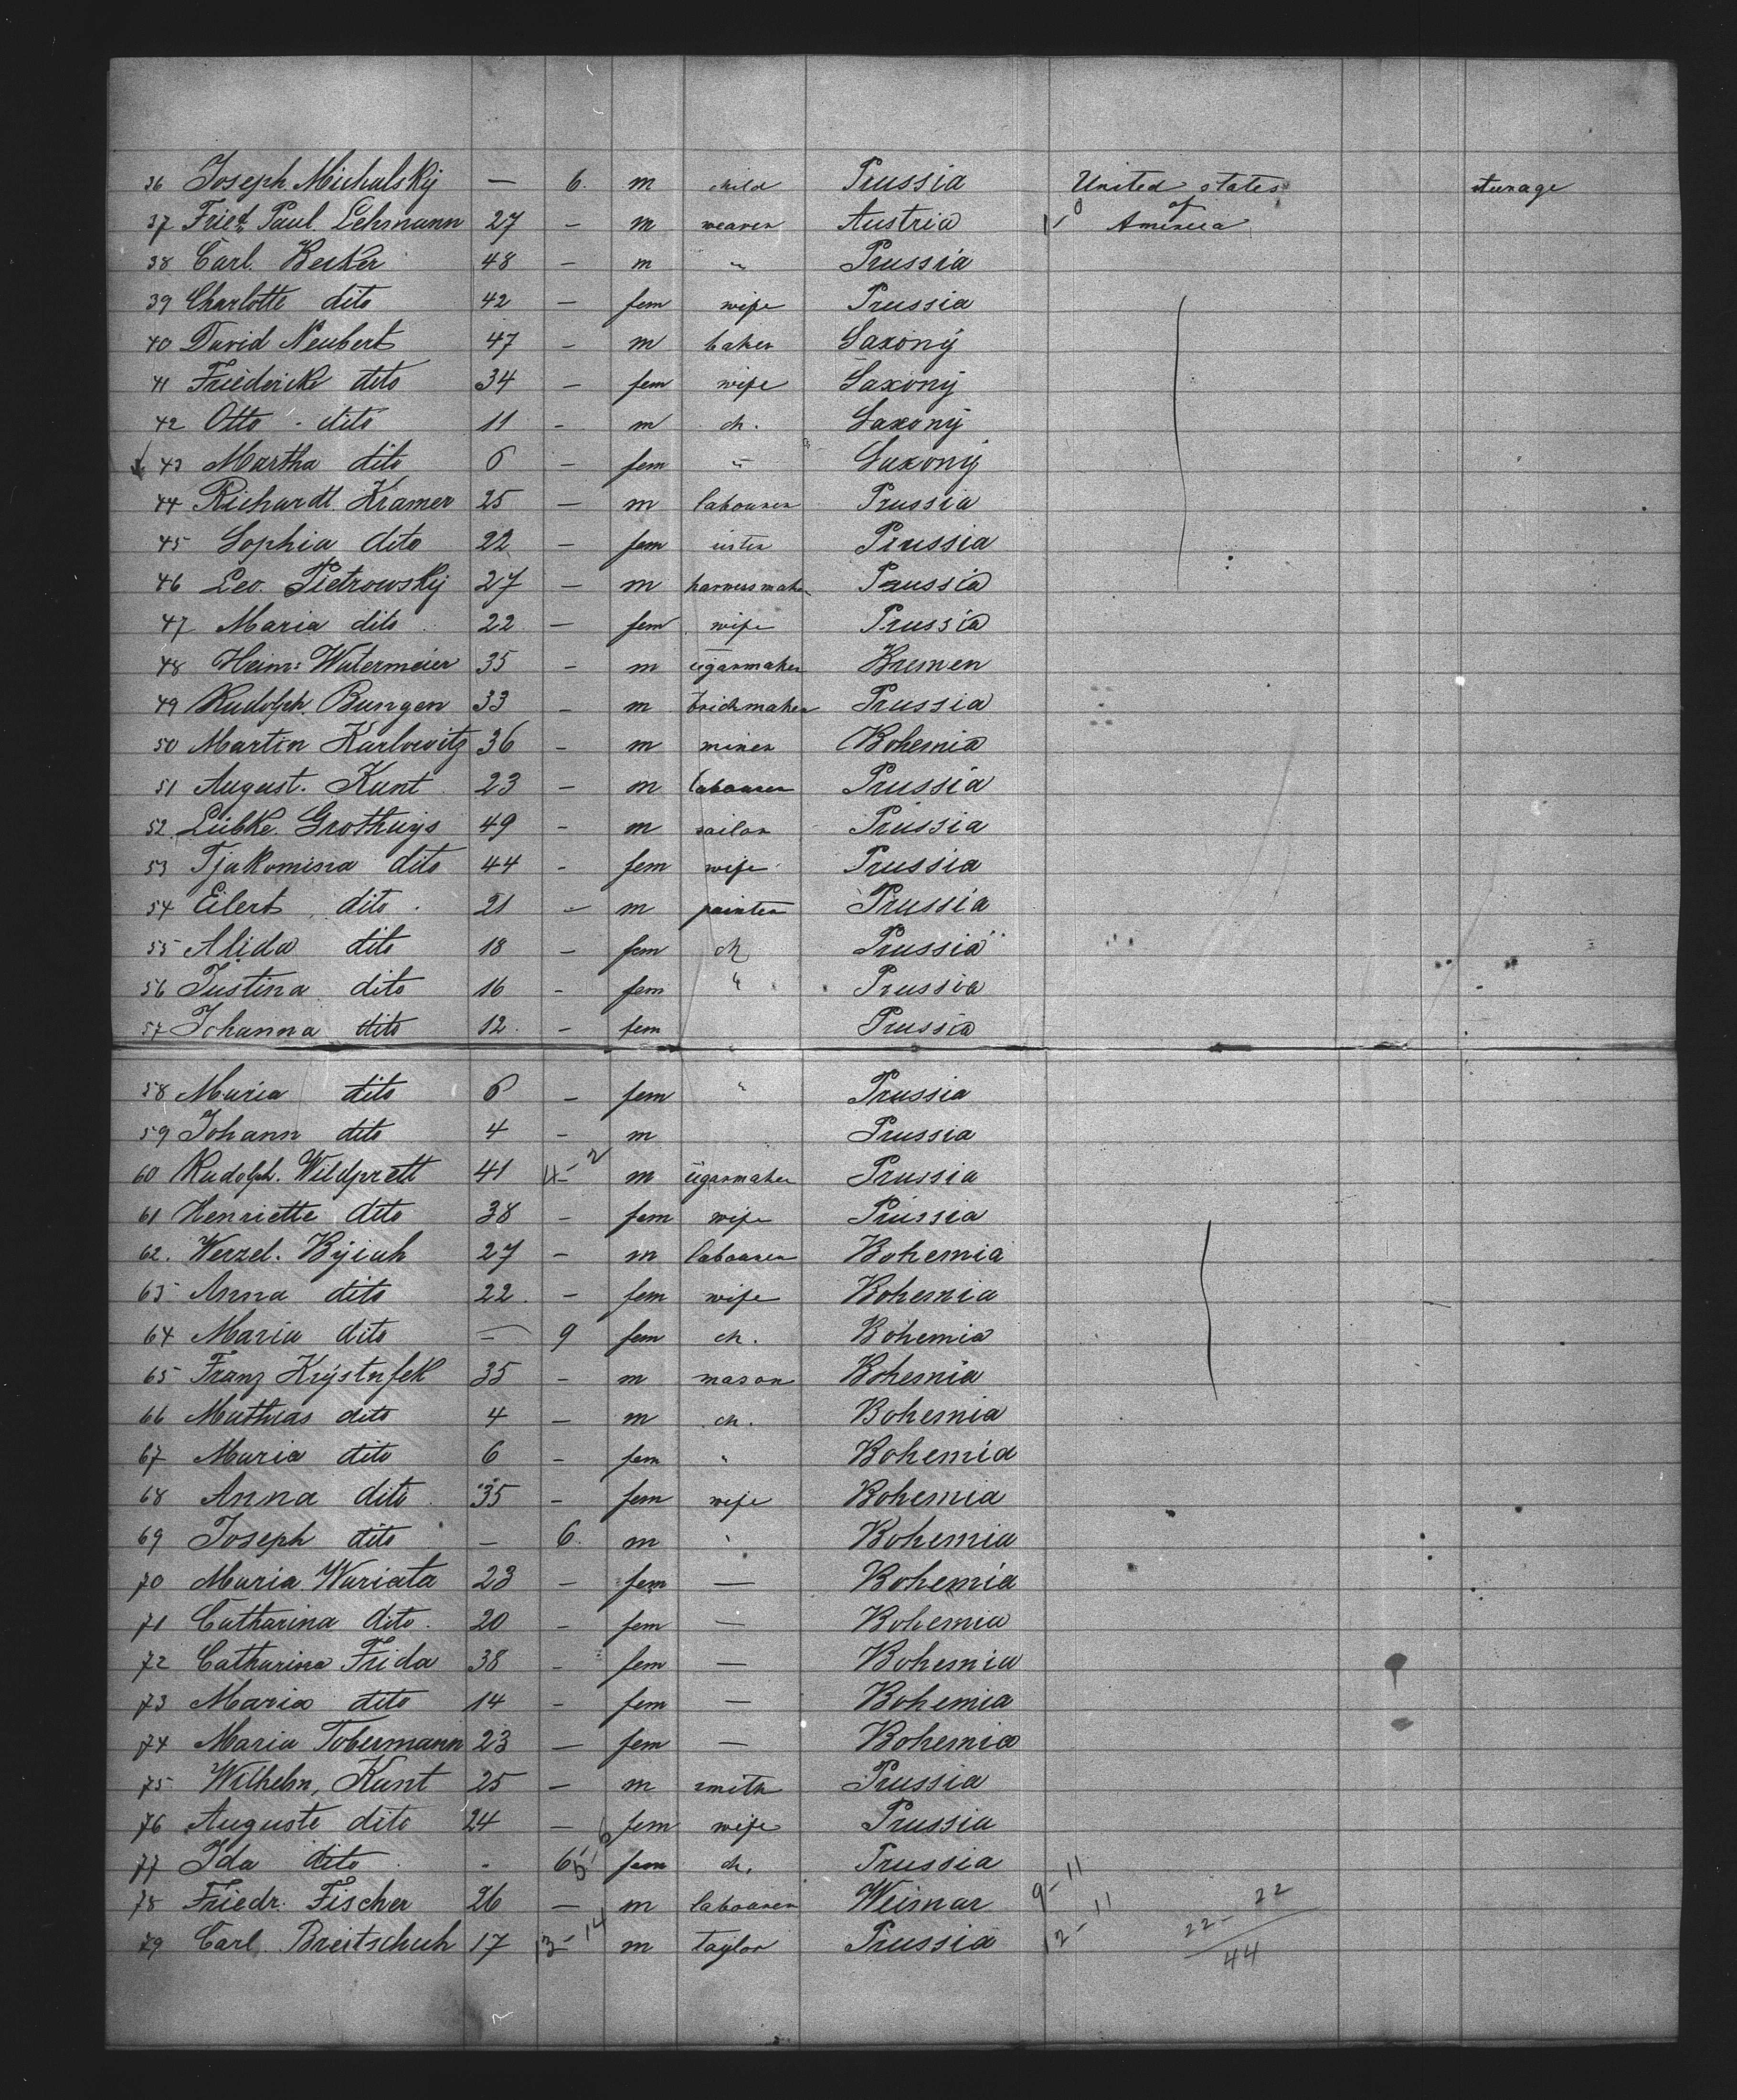 36 Joseph Michalsky — 6. m child Prussia United states steerage
37 Fried. Paul Lehmann 27 — m weaver Austria 1 - 0 of America
38 Carl. Becker 48 — m " Prussia
39 Charlotte dito 42 — fem wife Prussia
40 David Neubert 47 — m baker Saxony
41 Friedericke dito 34 — fem wife Saxony
42 Otto - dito 11 - m ch. Saxony
43 Martha dito 6 — fem " Saxony
44 Richardt. Kramer 25 — m labourer Prussia
45 Sophia dito 22 — fem sister Prussia
46 Leo. Pietrowsky 27 — m harnessmaker Prussia
47 Maria dito 22 — fem wife Prussia
48 Heinr: Watermeier 35 — m cigarmaker Bremen
49 Rudolph. Bungen 33 — m brickmaker Prussia
50 Martin Karlowitz 36 — m miner Bohemia
51 August. Kunt 23 — m labourer Prussia
52. Lübke. Grothuys 49 — m sailor Prussia
53 Tjakomina dito 44 - fem wife Prussia
54 Eilert dito 21 — m painter Prussia
55 Alida dito 18 — fem ch Prussia
56 Justina dito 16 - fem " Prussia
57 Johanna dito 12. — fem Prussia
58 Maria dito 6 — fem " Prussia
59 Johann dito 4 — m Prussia
60 Rudolph. Wildprett 41 4 - 2 m cigarmaker Prussia
61 Henriette dito 38 — fem wife Prussia
62. Wenzel. 27 — m labourer Bohemia
63 Anna dito 22. — fem wife Bohemia
64 Maria dito — 9 fem ch. Bohemia
65 Franz Krystufek 35 — m mason Bohemia
66 Mathias dito 4 — m ch. Bohemia
67 Maria dito 6 — fem " Bohemia
68 Anna dito 35 — fem wife Bohemia
69 Joseph dito — 6. m Bohemia
70 Maria Wariata 23 — fem — Bohemia
71 Catharina dito. 20 — fem — Bohemia
72 Catharina Frida 38 — fem — Bohemia
73 Maria dito 14 — fem — Bohemia
74 Maria Tobermann 23 — fem — Bohemia
75 Wilhelm, Kunt 25 — m smith Prussia
76 Auguste dito 24 — fem wife Prussia
77 Ida dito - 6 5 - 6 fem ch. Prussia
78 Friedr. Fischer 26 — m labourer Weimar 9 - 11 22 - 22
79 Carl. Breitschuh 17 13 - 14 m taylor Prussia 12 - 11 44